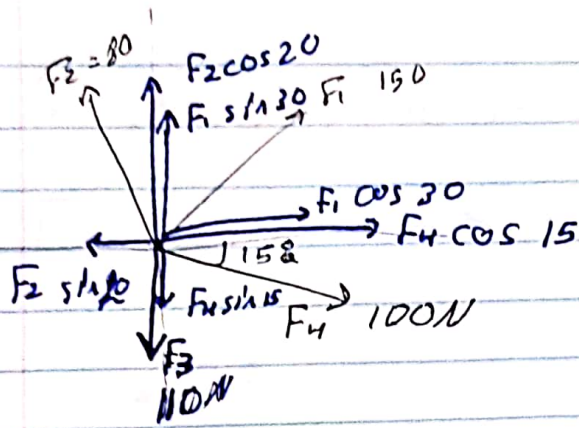 F2 = 80
F2 cos 20
F1 sin 30
F1 150
F1 cos 30
F4 cos 15
15
F2 sin 20
F4 sin 15
F4 100N
F3
110N